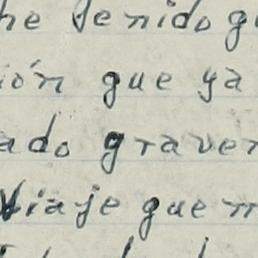 he venido g
ión que ya
ado graver
Viaje que m